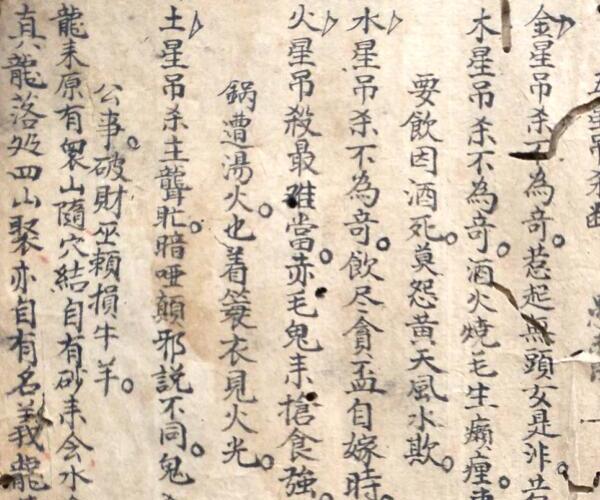 五星吊杀断
金星吊杀不為奇惹起無頭女是非
木星吊杀不為奇酒火燒毛生癩痙
要飲因酒死莫怨黃天風水欺
水星吊杀不為奇飲尽貪盃自嫁時
火星吊殺最难當赤毛鬼耒搶食強
鍋遭湯火也着簑衣見火光
土星吊杀主聾盳暗啞顛邪説不同鬼
公事破財巫賴損牛羊
龍耒原有衆山隨穴結自有砂耒会水
真龍落処四山聚亦自有名義龍